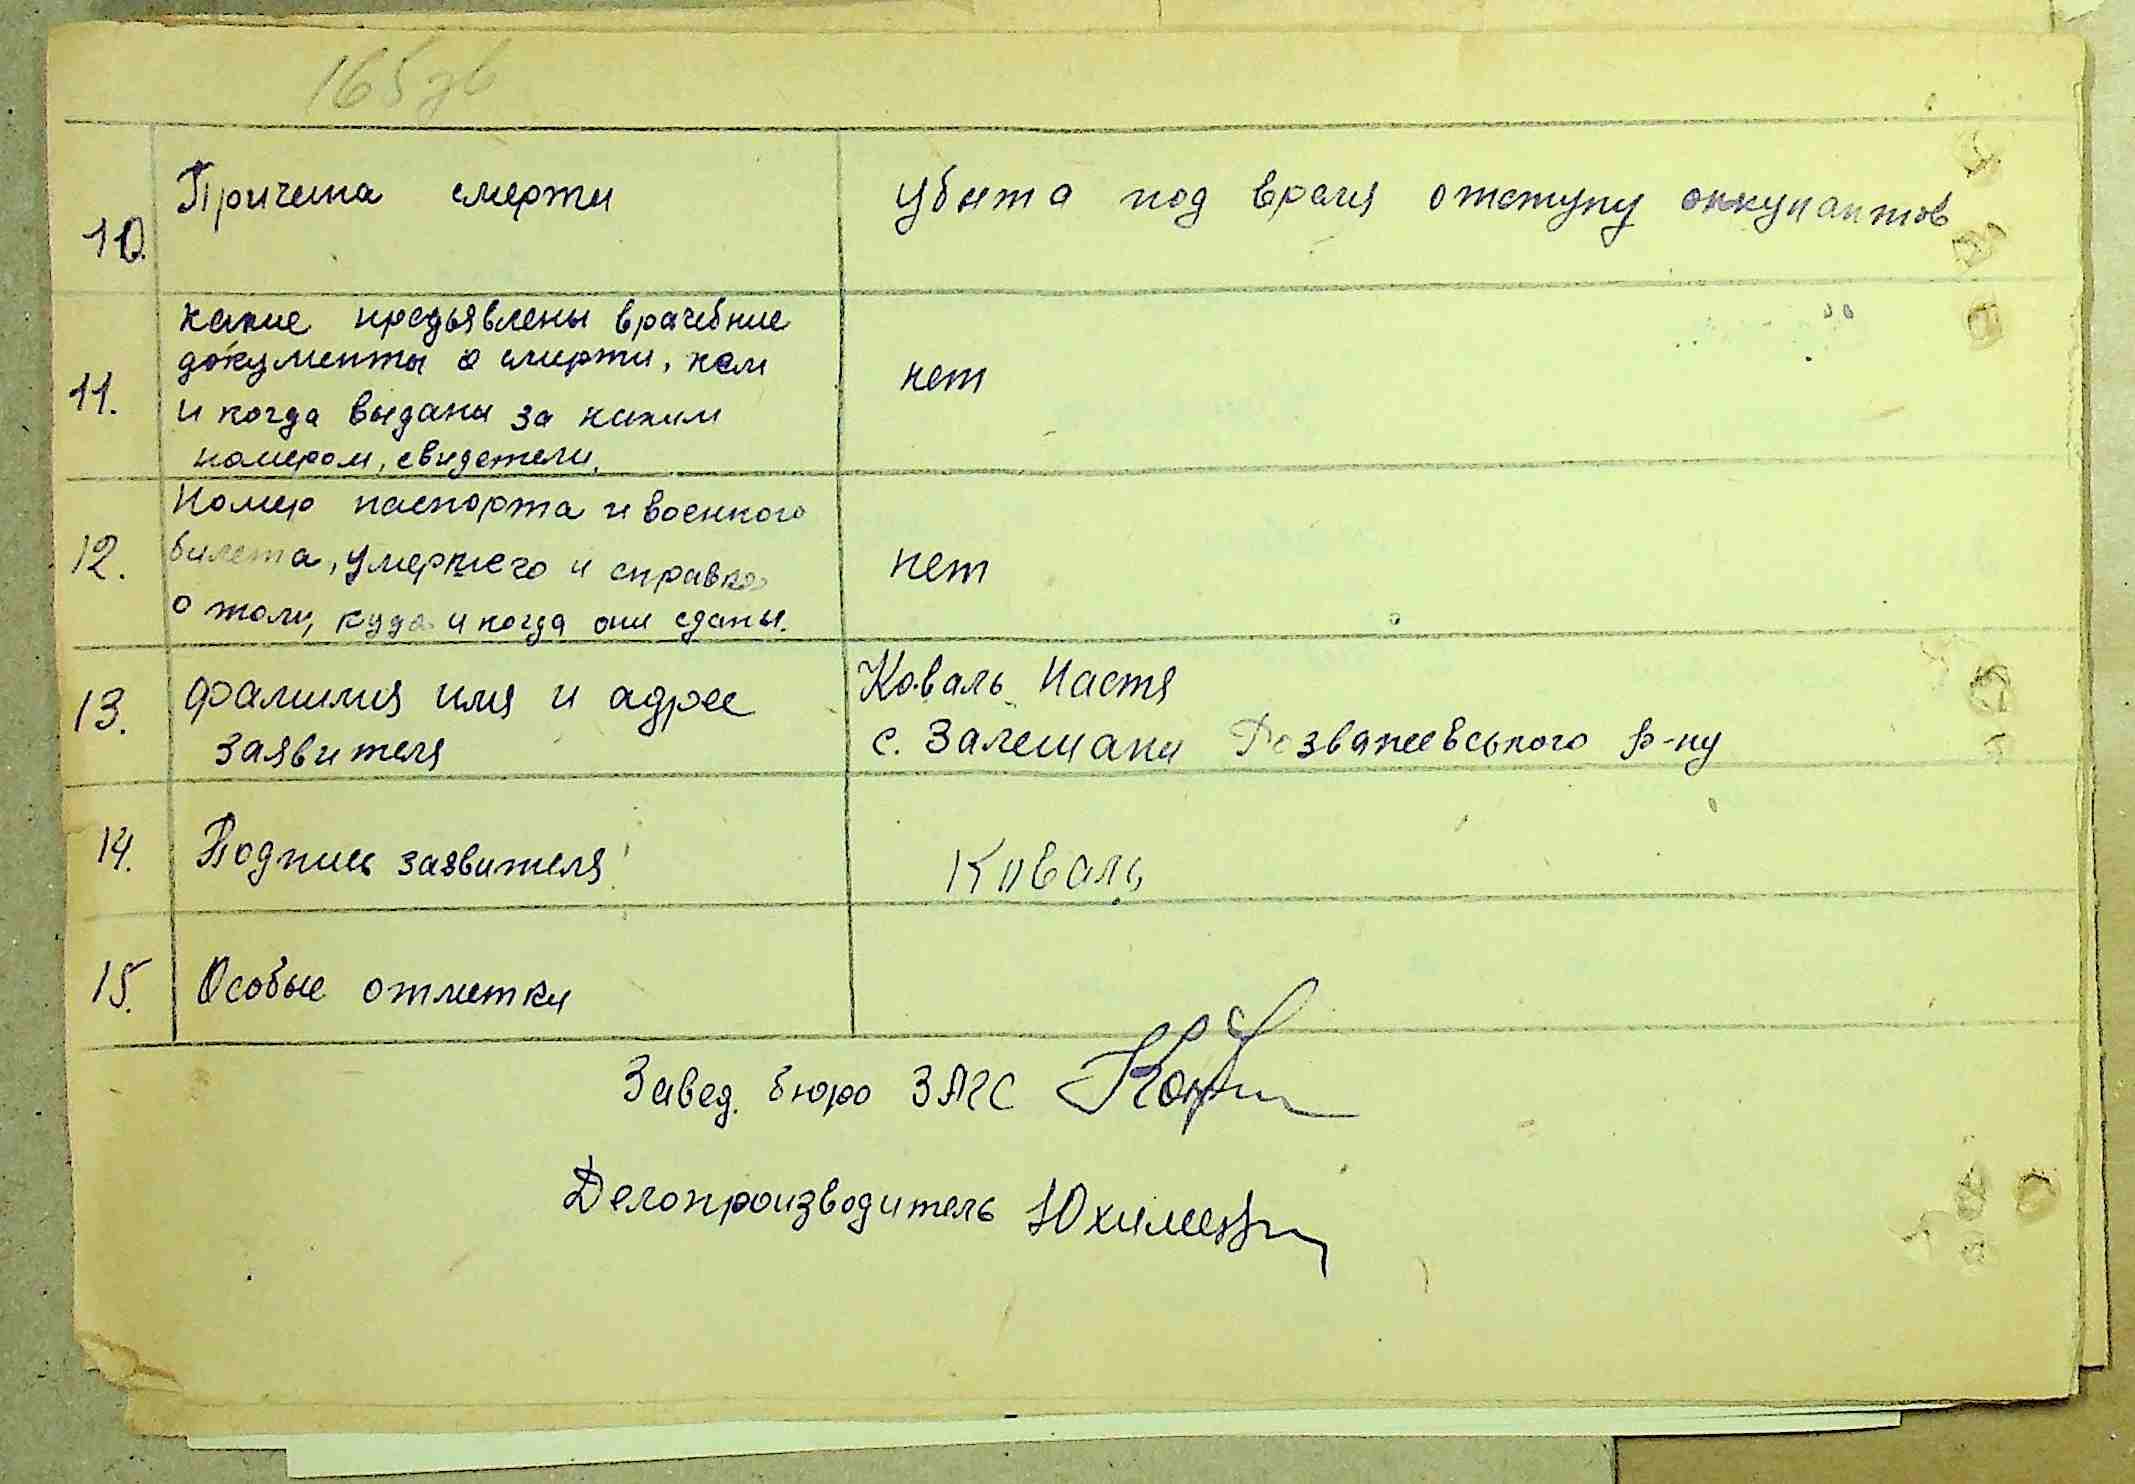 165зв
10. Причина смерти убита под время отступу оккупантов
11. какие предьявлены врачебние
документы о смерти, кем
и когда выданы за каким
номером, свидетели. нет
12. Номер паспорта и военного
билета, умершего и справка
о том, куда и когда они сданы. нет
13. Фамилия имя и адрес
заявителя
Коваль Настя
с. Залешани Розважевського р-ну
14. Подпись заявителя Коваль
15. Особые отметки
Завед. бюро ЗАГС
Делопроизводитель